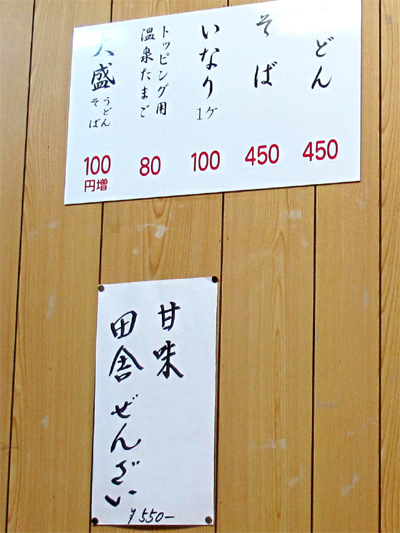 どん
450
そば
450
いなり 1ケ
100
トッピング用
温泉たまご
80
大盛 うどん そば
100
円増
甘味
田舎ぜんざい
¥550-